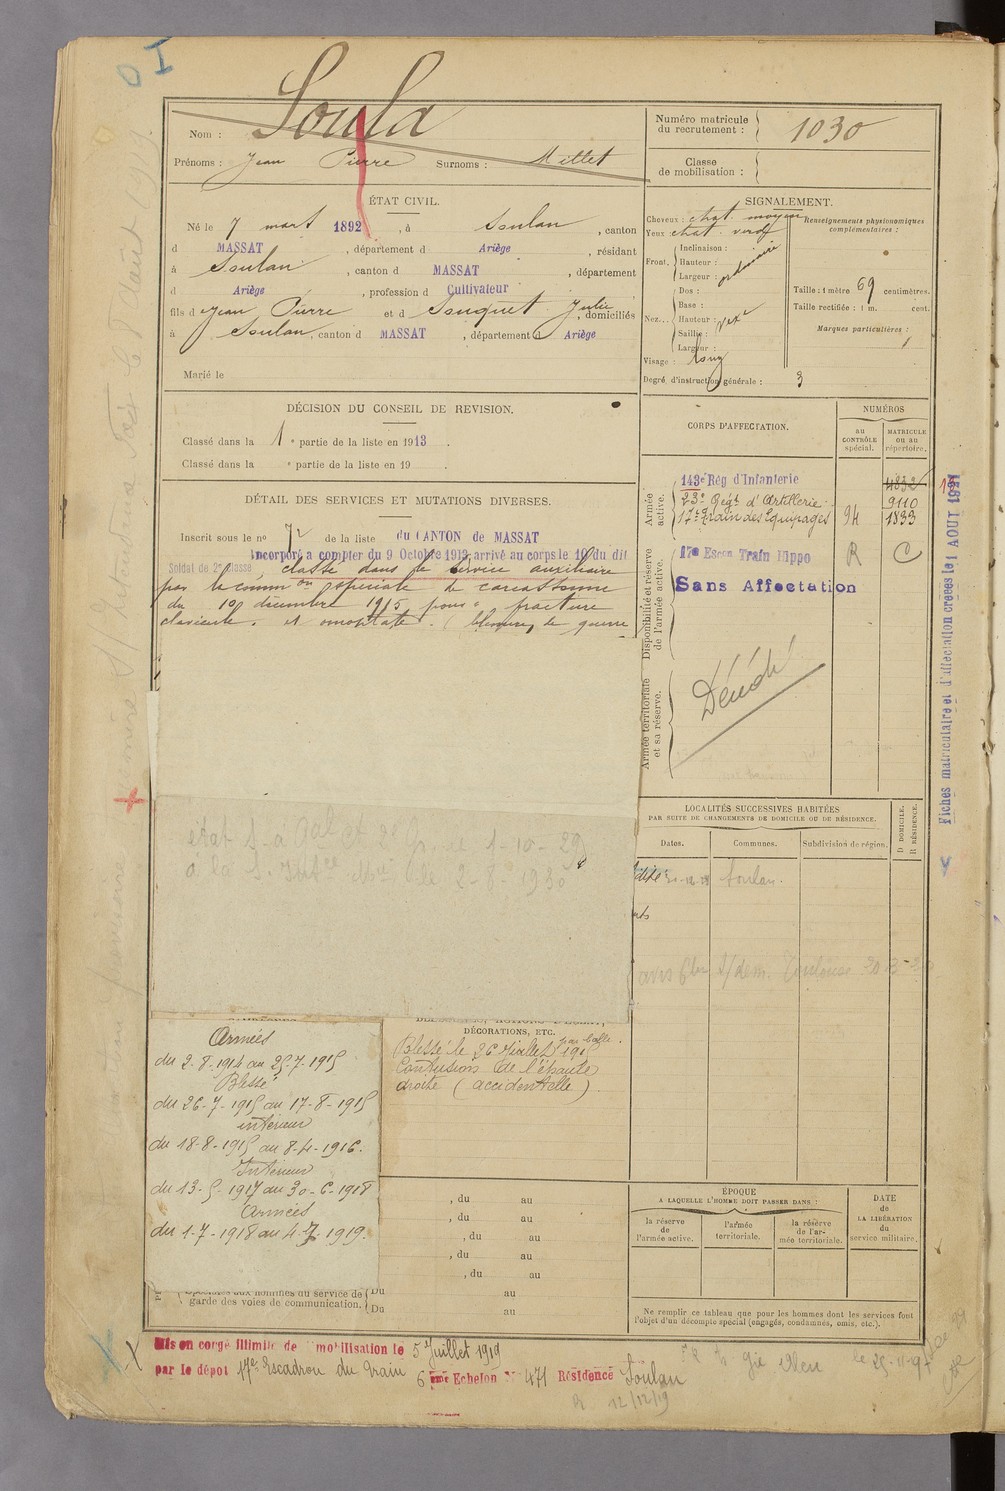 I
O
Nom : Soula
Prénoms : Jean Pierre Surnoms : Millet
Numéro matricule
du recrutement : 1030
Classe
de mobilisation :
ÉTAT CIVIL.
Né le 7 mars 1892, à Soulan, canton
d MASSAT, département d Ariège, résidant
à Soulan, canton d MASSAT, département
d Ariège, profession d Cultivateur
fils d Jean Pierre et d Souquet Julie, domiciliés
à Soulan, canton d MASSAT, département d Ariège
Marié le
SIGNALEMENT.
Cheveux : chat. moyen
Yeux chat. verd
Front. Inclinaison :
Hauteur :
Largeur : ordinaire
Nez. Dos :
Base :
Hauteur :
Saillie :
Largeur :
Visage : long
Degré d'instruction générale : 3
Renseignements physionomiques
complémentaires :
Taille : 1 mètre 69 centimètres.
Taille rectifiée : 1 m. cent.
Marques particulières :
DÉCISION DU CONSEIL DE REVISION.
Classé dans la 1e partie de la liste en 1913.
Classé dans la e partie de la liste en 19
DÉTAIL DES SERVICES ET MUTATIONS DIVERSES.
Inscrit sous le no 72 de la liste du CANTON DE MASSAT
Incorporé a compter du 9 Octobre 1913 arrivé au corps le 10 du dit
Soldat de 2e classe, classé dans le service auxiliaire
par la comm on spéciale de carcassonne
du 10 décembre 1915 pour fracture
clavicule. et omoplate. (blessure de guerre
CORPS D'AFFECTATION.
NUMÉROS
au
CONTRÔLE
spécial.
MATRICULE
ou au
répertoire.
Armée
active.
143e Rég d'Infanterie 4832
23e Regt d'Artillerie 9110
17e Train des Equipages 94 1833
Disponibilité et réserve
de l'armée active.
17e Escon Train Hippo R C
Sans Affectation
Armée territoriale
et sa réserve.
Fiches matriculaire et d'affectation créées le 1 AOUT 1921
LOCALITÉS SUCCESSIVES HABITÉES
PAR SUITE DE CHANGEMENTS DE DOMICILE OU DE RÉSIDENCE.
D DOMICILE.
R RÉSIDENCE.
Dates.
Communes.
Subdivision de région.
Soulan.
Toulouse
le 2-8-1930
DÉCORATIONS, ETC.
Blessé le 26 Juillet 1915 par balle.
Contusion de l'épaule
droite (accidentelle)
Armées
du 2-8-1914 au 25-7-1915
Blessé
du 26-7-1915 au 17-8-1915
intérieur
du 18-8-1915 au 8-4-1916.
Intérieur
du 13-5-1917 au 30-6-1918
Armées
du 1-7-1918 au 4-7-1919.
, du au
, du au
, du au
, du au
, du au
spéciales aux hommes du service de
garde des voies de communication.
Du au
Du au
ÉPOQUE
A LAQUELLE L'HOMME DOIT PASSER DANS :
la réserve
de
l'armée active.
l'armée
territoriale.
la réserve
de l'ar-
mée territoriale.
DATE
de
LA LIBÉRATION
du
service militaire.
Ne remplir ce tableau que pour les hommes dont les services font
l'objet d'un décompte spécial (engagés, condamnés, omis, etc.).
Mis en congé illimité de mobilisation le 5 Juillet 1919
par le dépot 17e Escadron du Train 6 ème Echelon N° 471 Résidence Soulan
R 12/12/19